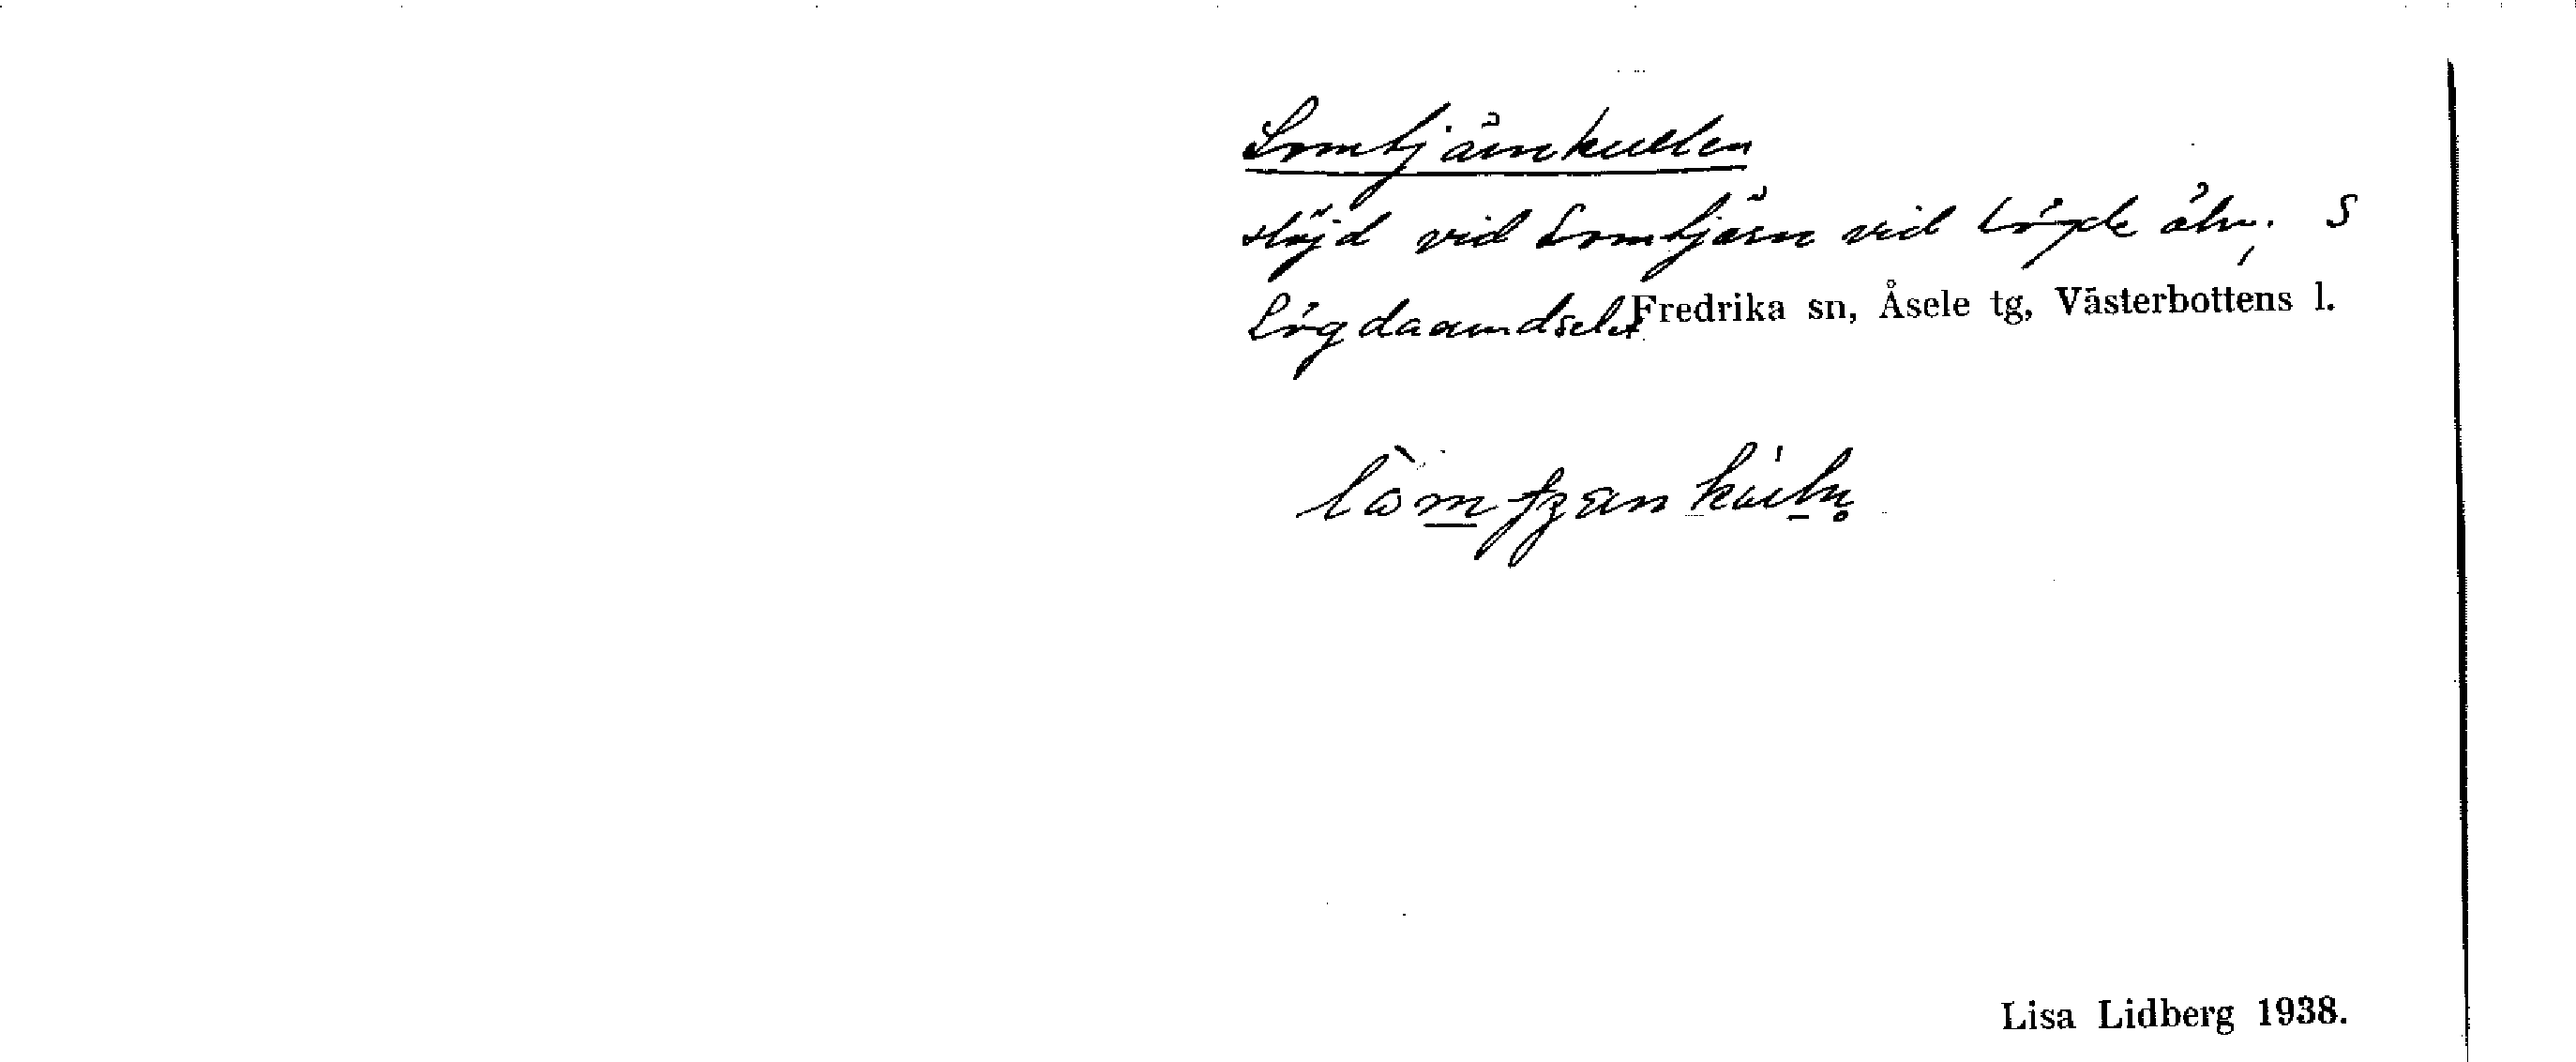 Lomtjärnkullen
slöjd vid Lomtjärn vid Lögde älv, S
Lögdasundselet Fredrika sn, Åsele tg, Västerbottens l.
Lisa Lidberg 1938.